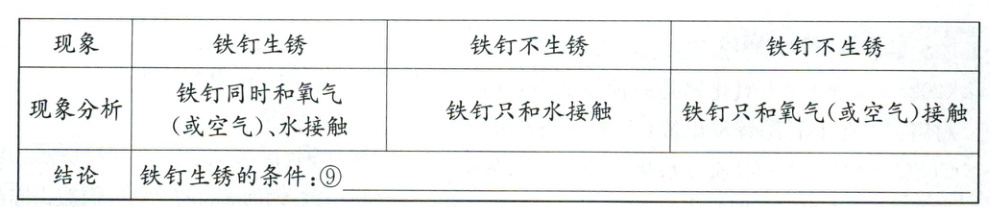 现象 铁钉生锈 铁钉不生锈 铁钉不生锈
现象分析 铁钉同时和氧气(或空气)、水接触 铁钉只和水接触 铁钉只和氧气(或空气)接触
结论 铁钉生锈的条件:⑨